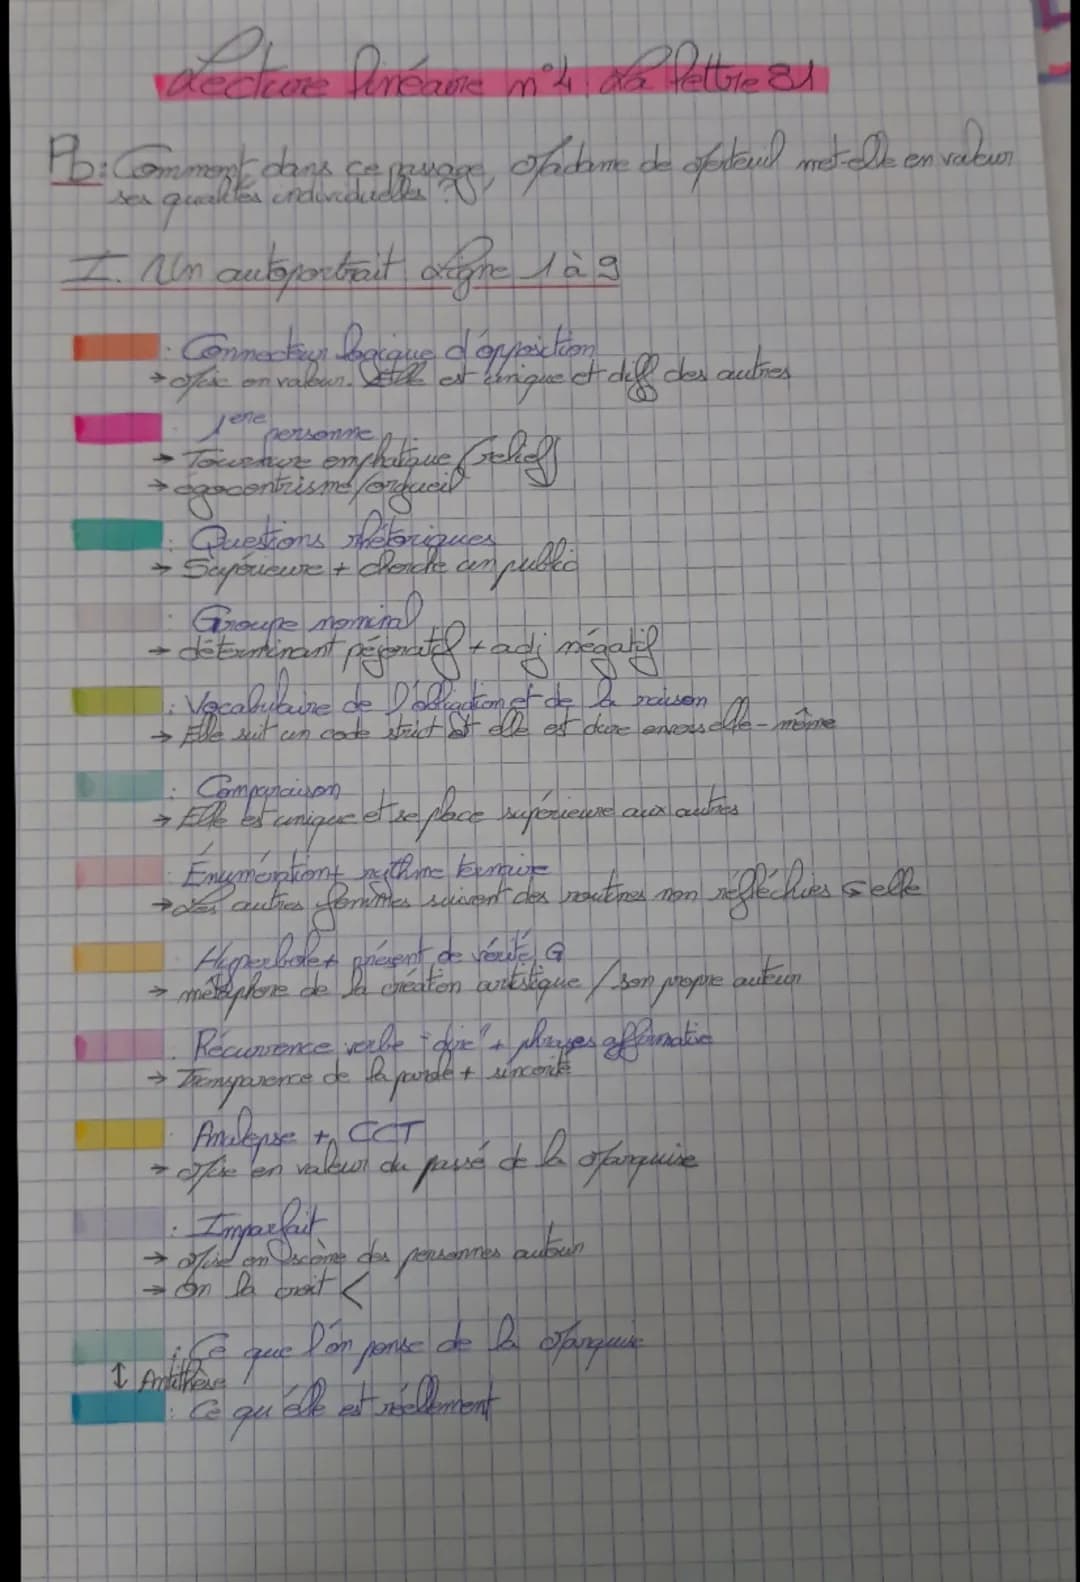 Lecture linéaire n°4 : La lettre 81
Pb : Comment dans ce passage, Madame de Merteuil met-elle en valeur
ses qualités individuelles ?
I. Un autoportrait Ligne 1 à 9
: Connecteur logique d'opposition
→ Mise en valeur. Elle est unique et diff des autres
: 1ere personne
→ Tournure emphatique (relief)
→ égocentrisme/orgueil
: Questions rhétoriques
→ Supérieure + cherche un public
: Groupe nominal
→ déterminant péjoratif + adj négatif
: Vocabulaire de l'obligation et de la raison
→ Elle suit un code strict et elle est dure envers elle-même
: Comparaison
→ Elle est unique et se place supérieure aux autres
: Énumération + rythme ternaire
→ Les autres femmes suivent des routines non réfléchies ≠ elle
: Hyperbole + présent de vérité G
→ métaphore de la création artistique / son propre auteur
: Récurrence verbe "dire" + phrases affirmative
→ Transparence de la parole + sincérité
: Analepse + CCT
→ Mise en valeur du passé de la Marquise
: Imparfait
→ Mise en scène des personnes autour
→ On la croit <
: Ce que l'on pense de la Marquise
↕ Antithèse
: Ce qu'elle est réellement